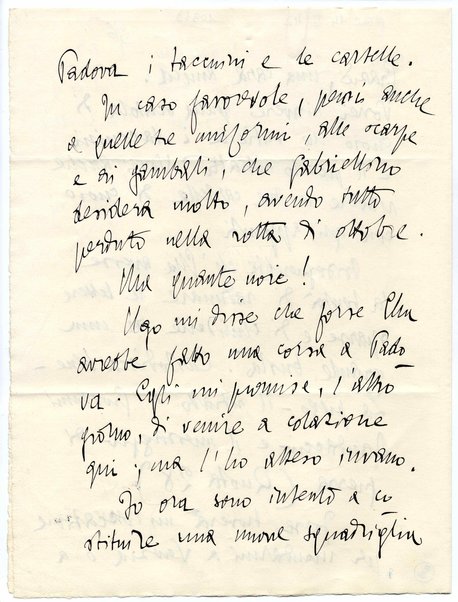 Padova i taccuini e le cartelle.
In caso favorevole, pensi anche
a quelle tre uniformi, alle scarpe
e ai gambali che Gabriellino
desidera molto, avendo tutto
perduto nella rotta di ottobre.
Ma quante noie!
Ugo mi disse che forse Ella
avrebbe fatto una corsa a Pado
va. Egli mi promise, l'altro
giorno, di venire a colazione
qui; ma l'ho atteso invano.
Io ora sono intento a co
stituire una nuova squadriglia